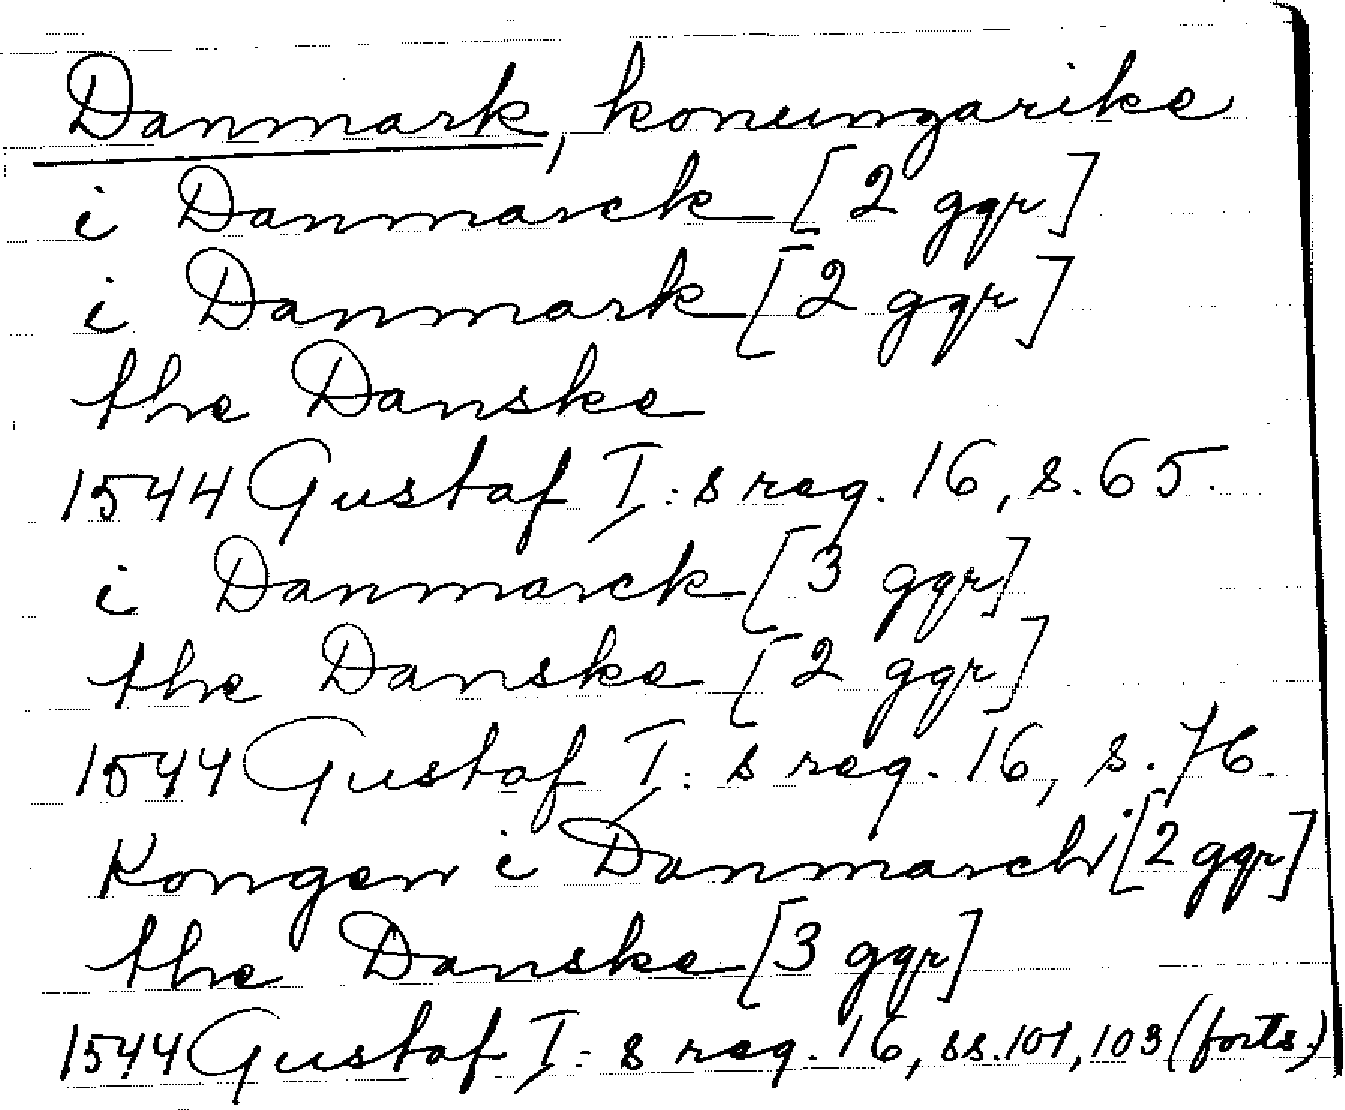 Danmark, konungarike
i Danmarck [2 ggr]
i Danmark [2 ggr]
the Danske
1544 Gustaf I:s reg. 16, s. 65.
i Danmarck [3 ggr]
the Danske [2 ggr]
1544 Gustaf I:s reg. 16, s. 76.
Kongen i Danmarch [2 ggr]
the Danske [3 ggr]
1544 Gustaf I:s reg. 16, ss. 101, 103 (forts.)